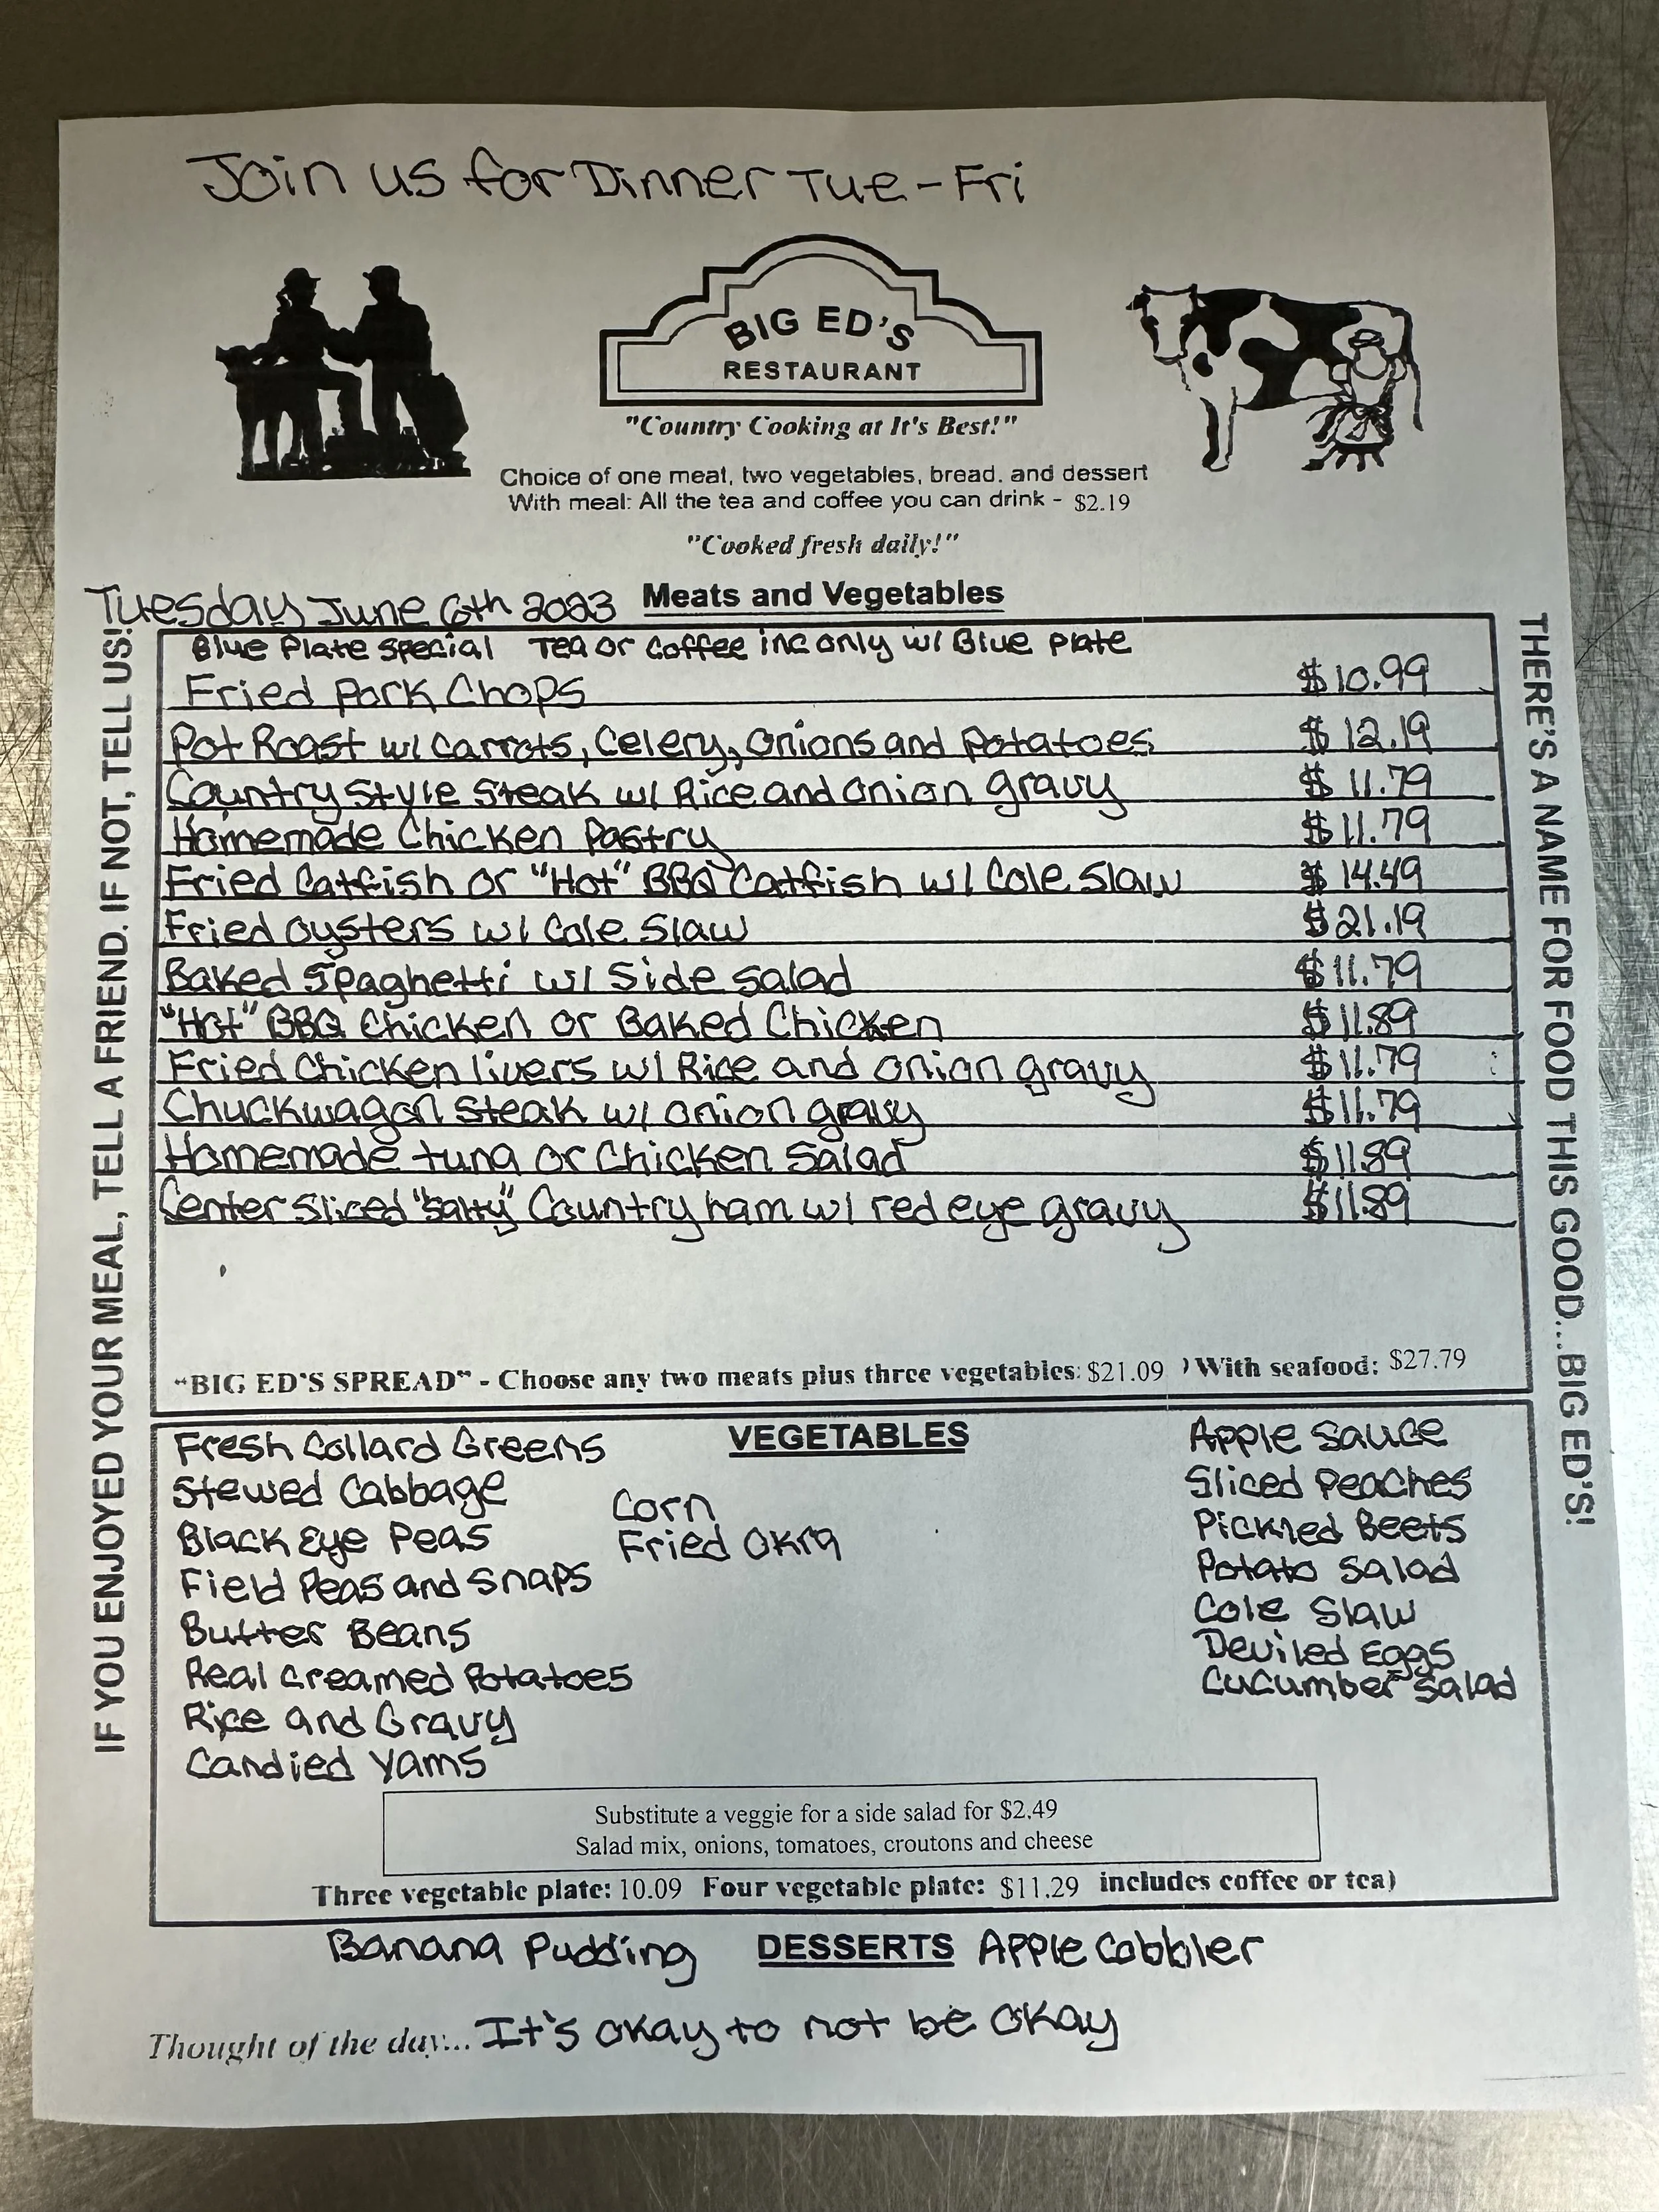 Join us for Dinner Tue-Fri
BIG ED'S
RESTAURANT
"Country Cooking at It's Best!"
Choice of one meat, two vegetables, bread. and dessert
With meal: All the tea and coffee you can drink - $2.19
"Cooked fresh daily!"
Tuesday June 6th 2023 Meats and Vegetables
Blue Plate Special Tea or Coffee inc only w/ Blue Plate
Fried Pork Chops $10.99
Pot Roast w/ Carrots, Celery, Onions and Potatoes $12.19
Country Style Steak w/ Rice and Onion gravy $11.79
Homemade Chicken Pastry $11.79
Fried Catfish or "Hot" BBQ Catfish w/ Cole Slaw $14.49
Fried Oysters w/ Cole Slaw $21.19
Baked Spaghetti w/ Side Salad $11.79
"Hot" BBQ Chicken or Baked Chicken $11.89
Fried Chicken livers w/ Rice and onion gravy $11.79
Chuckwagon Steak w/ onion gravy $11.79
Homemade tuna or Chicken Salad $11.89
Center Sliced "Salty" Country ham w/ red eye gravy $11.89
"BIG ED'S SPREAD" - Choose any two meats plus three vegetables: $21.09 ) With seafood: $27.79
IF YOU ENJOYED YOUR MEAL, TELL A FRIEND. IF NOT, TELL US!
THERE'S A NAME FOR FOOD THIS GOOD...BIG ED'S!
VEGETABLES
Fresh Collard Greens
Stewed Cabbage
Black Eye Peas
Field Peas and Snaps
Butter Beans
Real Creamed Potatoes
Rice and Gravy
Candied Yams
Corn
Fried Okra
Apple Sauce
Sliced Peaches
Pickled Beets
Potato Salad
Cole Slaw
Deviled Eggs
Cucumber Salad
Substitute a veggie for a side salad for $2.49
Salad mix, onions, tomatoes, croutons and cheese
Three vegetable plate: 10.09 Four vegetable plate: $11.29 includes coffee or tea)
Banana Pudding DESSERTS Apple Cobbler
Thought of the day... It's okay to not be okay